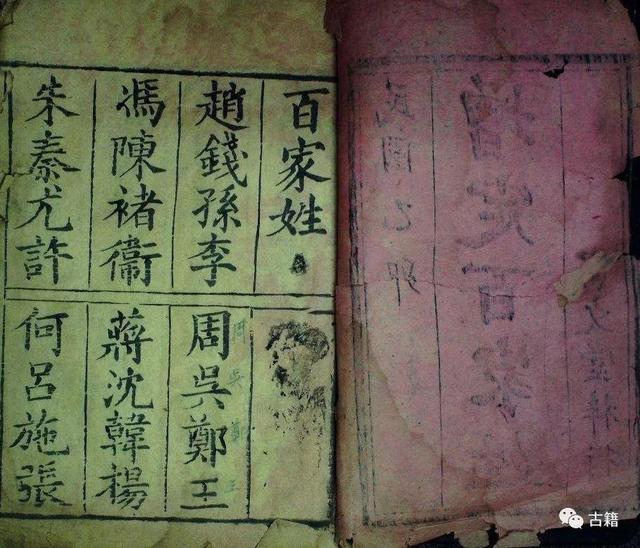 百家
民國乙卯
百家姓
趙錢孫李 周吳鄭王
馮陳褚衛 蔣沈韓楊
朱秦尤許 何呂施張
古籍